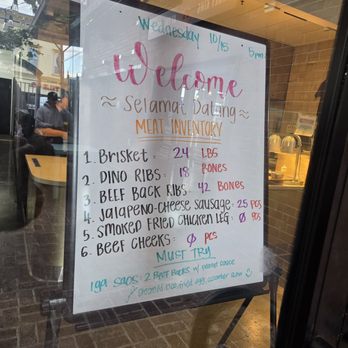 Wednesday 10/15 5pm
Welcome
≈ Selamat Datang ≈
MEAT INVENTORY
1. Brisket: 24 LBS
2. DINO RIBS: 18 BONES
3. BEEF BACK RIBS: 42 BONES
4. JALAPEÑO-CHEESE SAUSAGE: 25 PCS
5. SMOKED FRIED CHICKEN LEG: Ø PCS
6. BEEF CHEEKS: Ø PCS
MUST TRY
Iga Saos: 2 Beef Backs w/